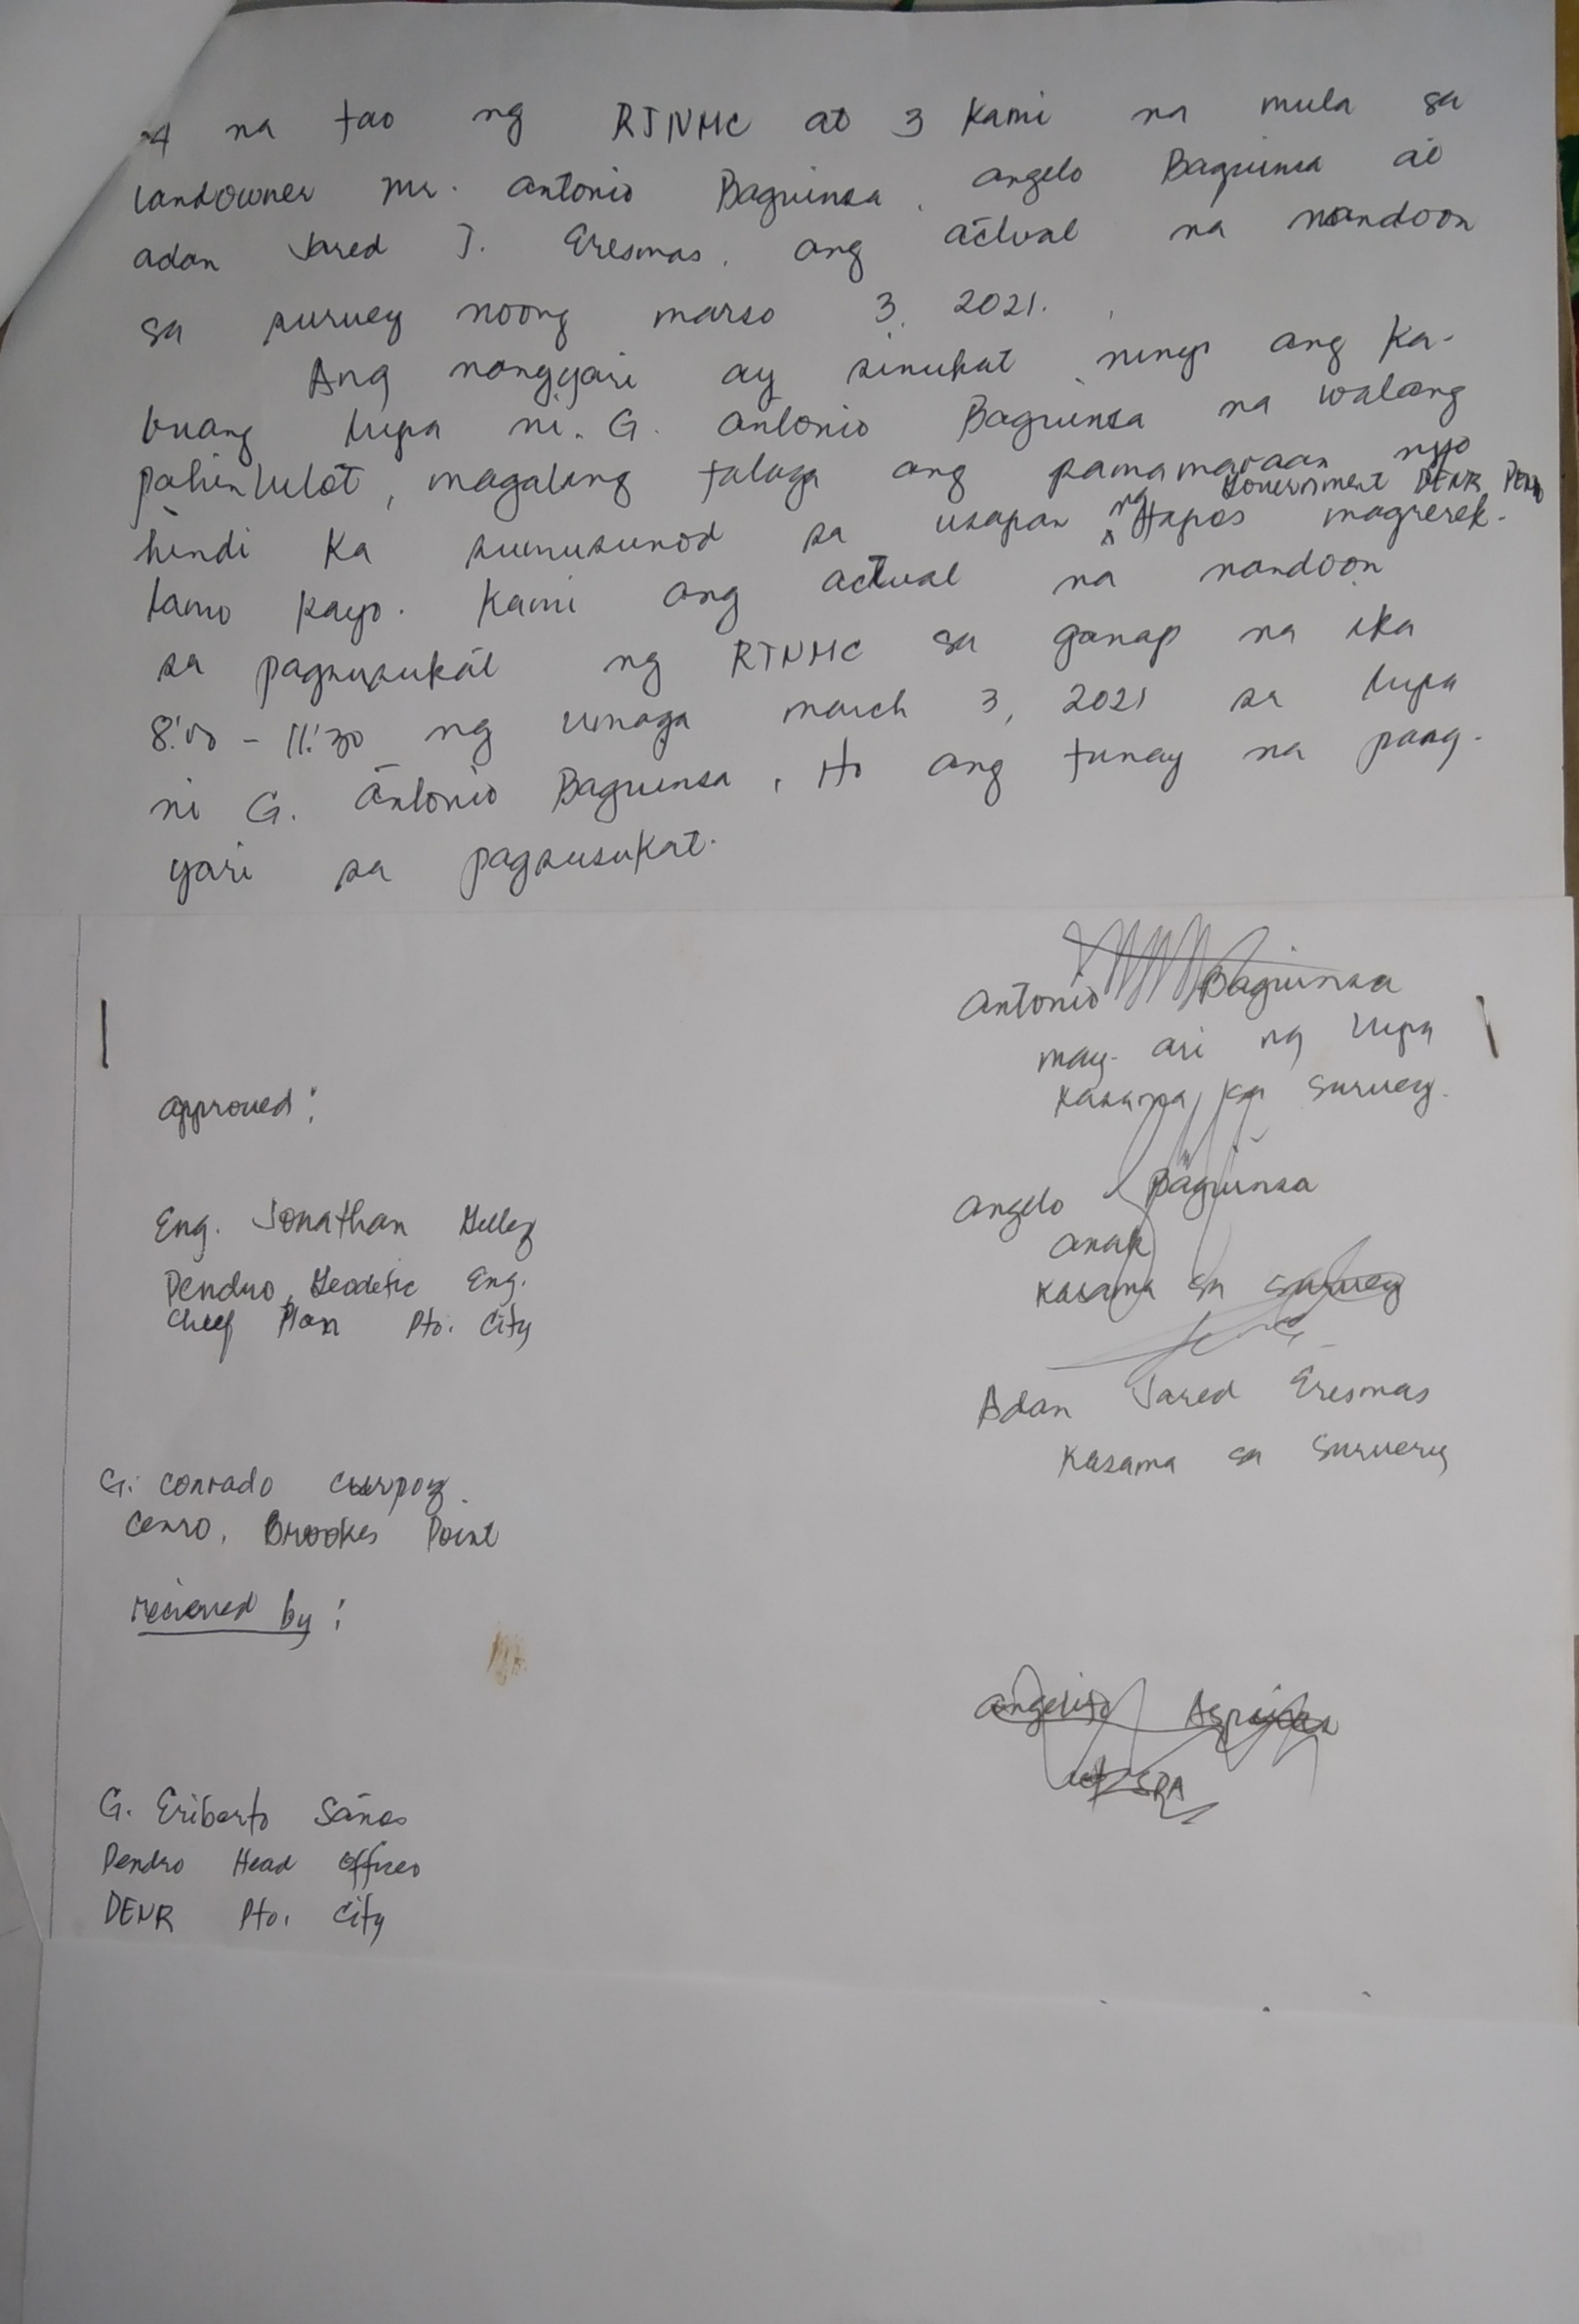 4 na tao ng RTNMC at 3 kami na mula sa
landowner Mr. Antonio Baguinsa, angelo Baguinsa at
adan Jared J. Eresmas. ang actual na nandoon
sa survey noong marso 3, 2021.
Ang nangyari ay sinukat ninyo ang ka-
buang lupa ni. G. Antonio Baguinsa na walang
pahintulot, magaling talaga ang pamamaraan nyo
Government DENR
hindi ka sumusunod sa usapan ng Hapos magrerek-
lamo kayo. Kami ang actual na nandoon
sa pagsusukat ng RTNMC sa ganap na ika
8:00 - 11:30 ng umaga march 3, 2021 sa lupa
ni G. Antonio Baguinsa, Ito ang tunay na pang-
yari sa pagsusukat.
Antonio Baguinsa
may-ari ng Lupa
Kasama sa Survey.
approved:
Angelo Baguinsa
anak
Kasama sa survey
Eng. Jonathan
Pendro, Geodetic Eng.
Cheef Plan Pto. City
Adan Jared Eresmas
Kasama sa Survery
G. Conrado
Cenro, Brookes Point
recieved by:
angelito
SPA
G. Eriberto Saños
Pendro Head Officer
DENR Pto. City